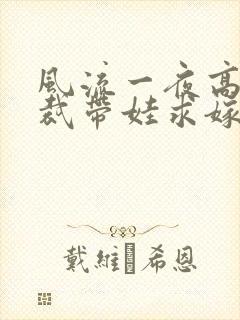 風流一夜高
裁帶娃求嫁
戴維 希恩